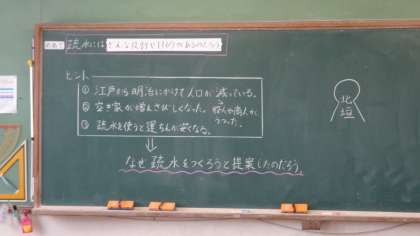 めあて 疏水にはどんな役割や目的があるのだろう。
ヒント
① 江戸から明治にかけて人口が減っている。
② 空き家が増えさびしくなった。
役人や商人が
うつった。
③ 疏水を使うと運ちんが安くなる。
なぜ疏水をつくろうと提案したのだろう。
北垣